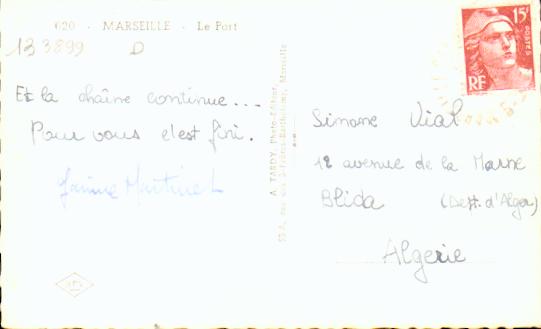 620 - MARSEILLE - Le Port
133899 D
Et la chaîne continue...
Pour vous c'est fini.
Janine Martinet
A. TARDY, Photo-Editeur
15F
POSTES
RF
Simone Vial
12 avenue de la Marne
Blida (Dept. d'Alger)
Algerie